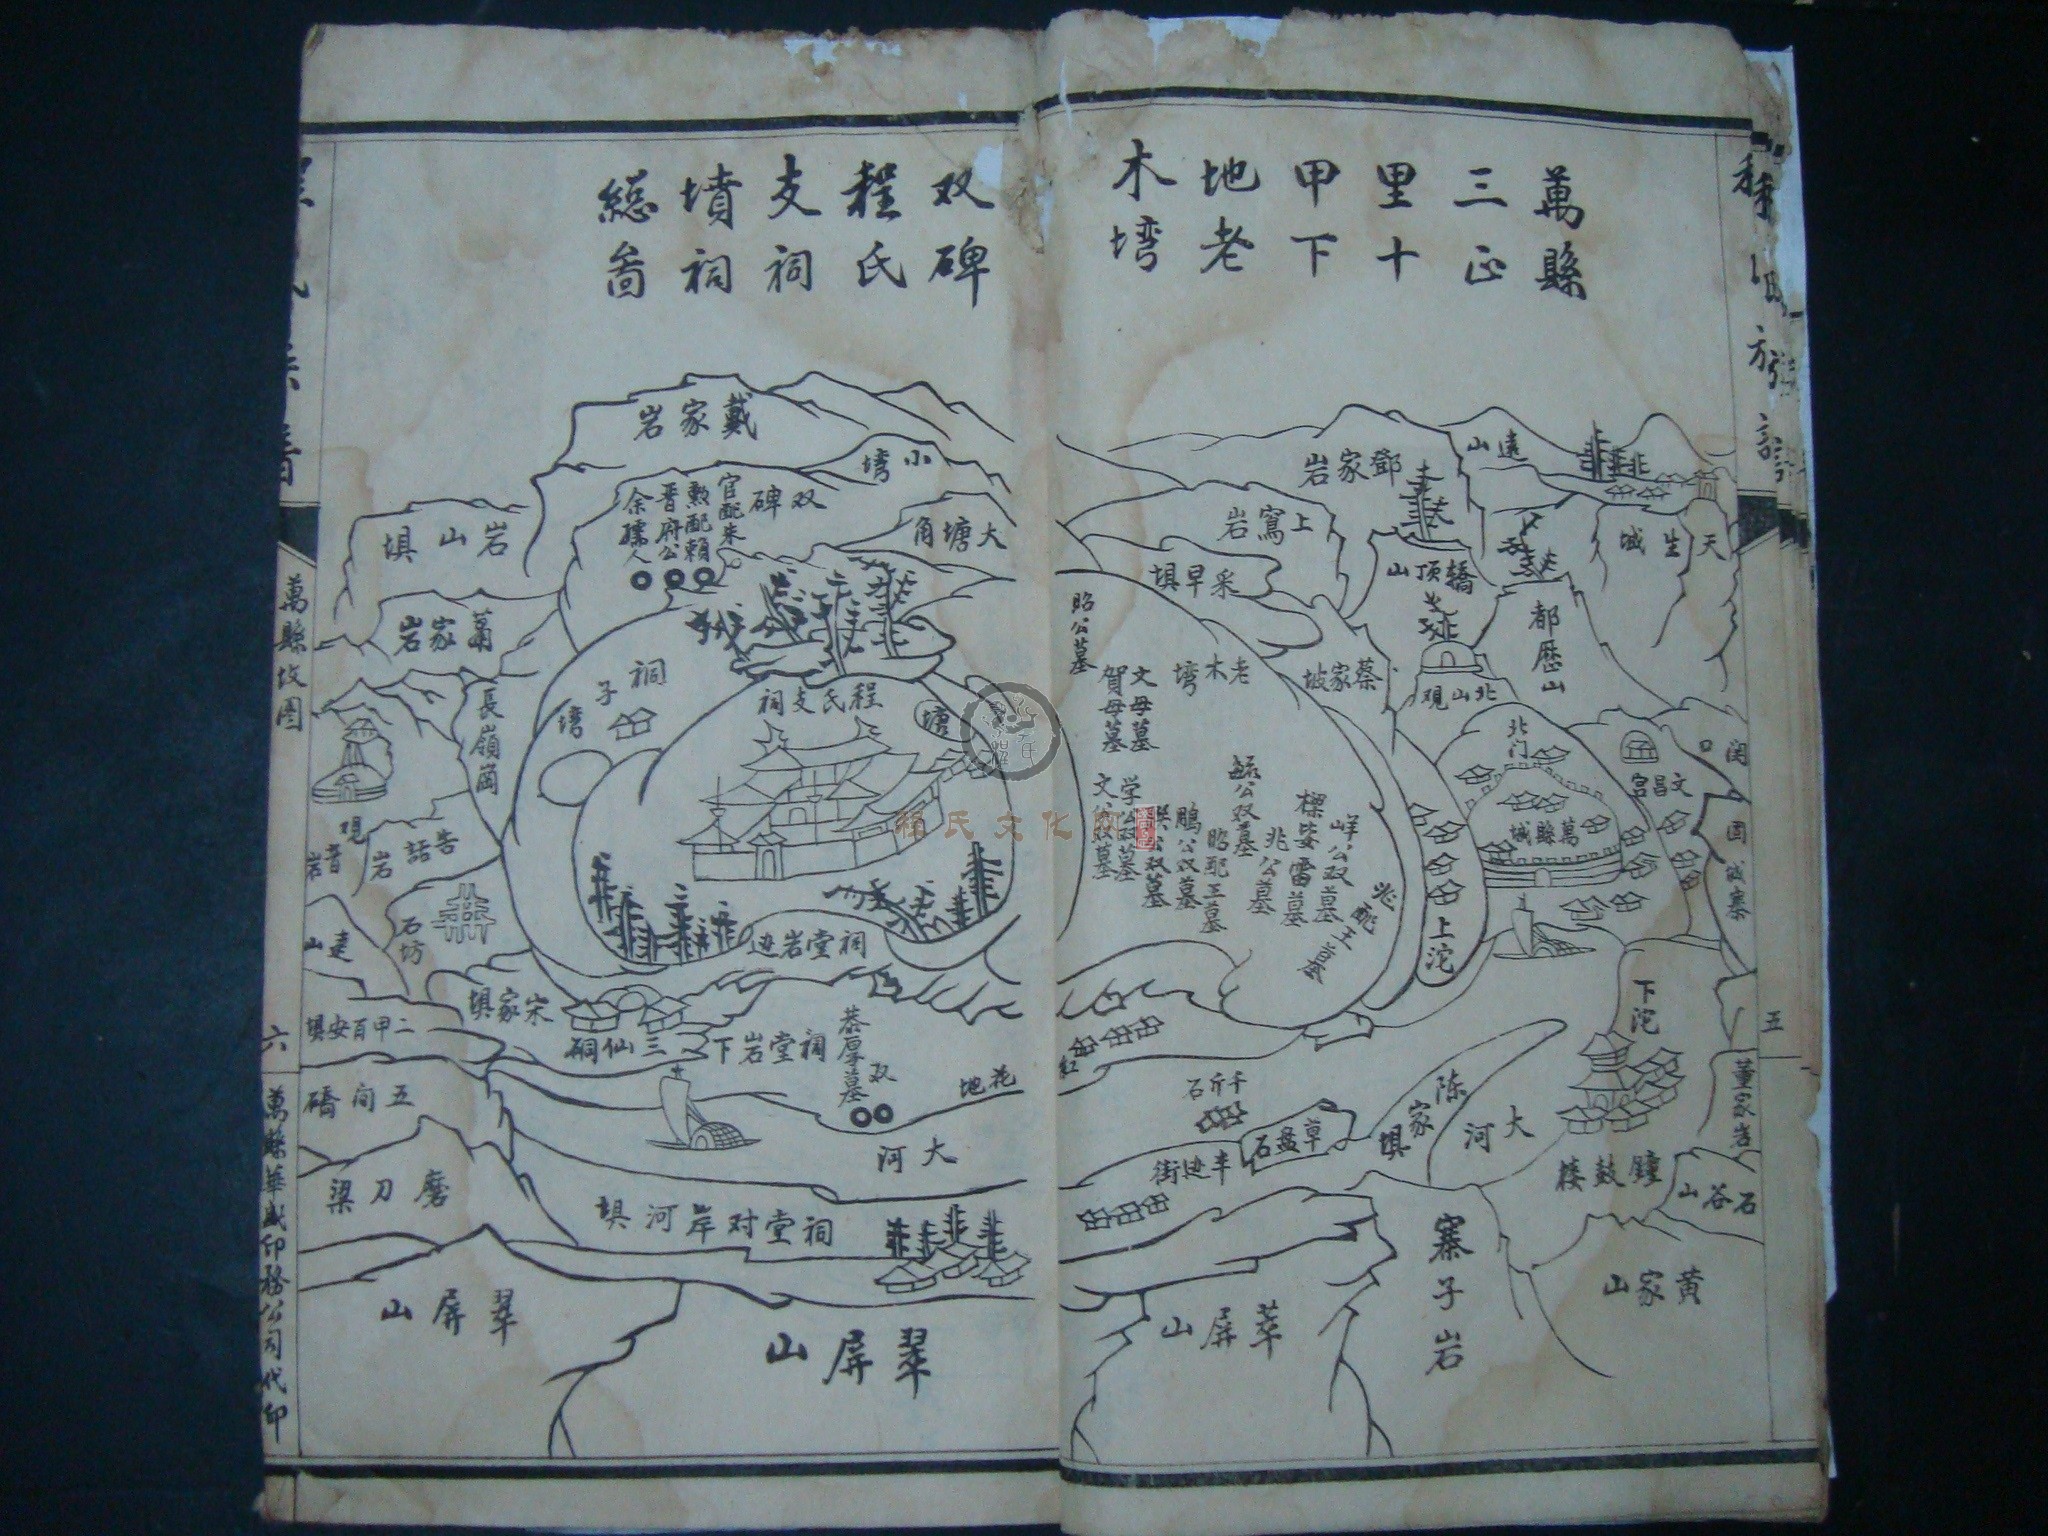 萬縣
三正
里十
甲下
地老
木塆
双碑
程氏
支祠
墳祠
總啚
遠山
鄧家岩
天生城
上窩岩
轎頂山
采早垻
都歷山
北山观
蔡家坡
老木塆
昭公墓
文母墓
賀母墓
北门
文昌宫
萬縣城
学公墓
鵬公双墓
昭配王墓
兆公墓
標妣雷墓
峄公双墓
兆配王墓
上沱
下沱
五
董家岩
千斤石
草盘石
半边街
陈家垻
大河
鐘鼓楼
石谷山
黄家山
寨子岩
萃屏山
戴家岩
小塆
双碑
官配朱
勲配賴
晋府公
余孺人
大塘角
岩山垻
蕭家岩
長嶺崗
祠子塆
程氏支祠
塘
观音岩
告話岩
石坊
遠山
祠堂岩边
宋家垻
三仙硐
祠堂岩下
恭厚墓
双
花地
二甲百安垻
五间硚
大河
磨刀梁
祠堂对岸河垻
翠屏山
翠屏山
萬縣坟圖
六
萬縣華盛印務公司代印
程氏文化网